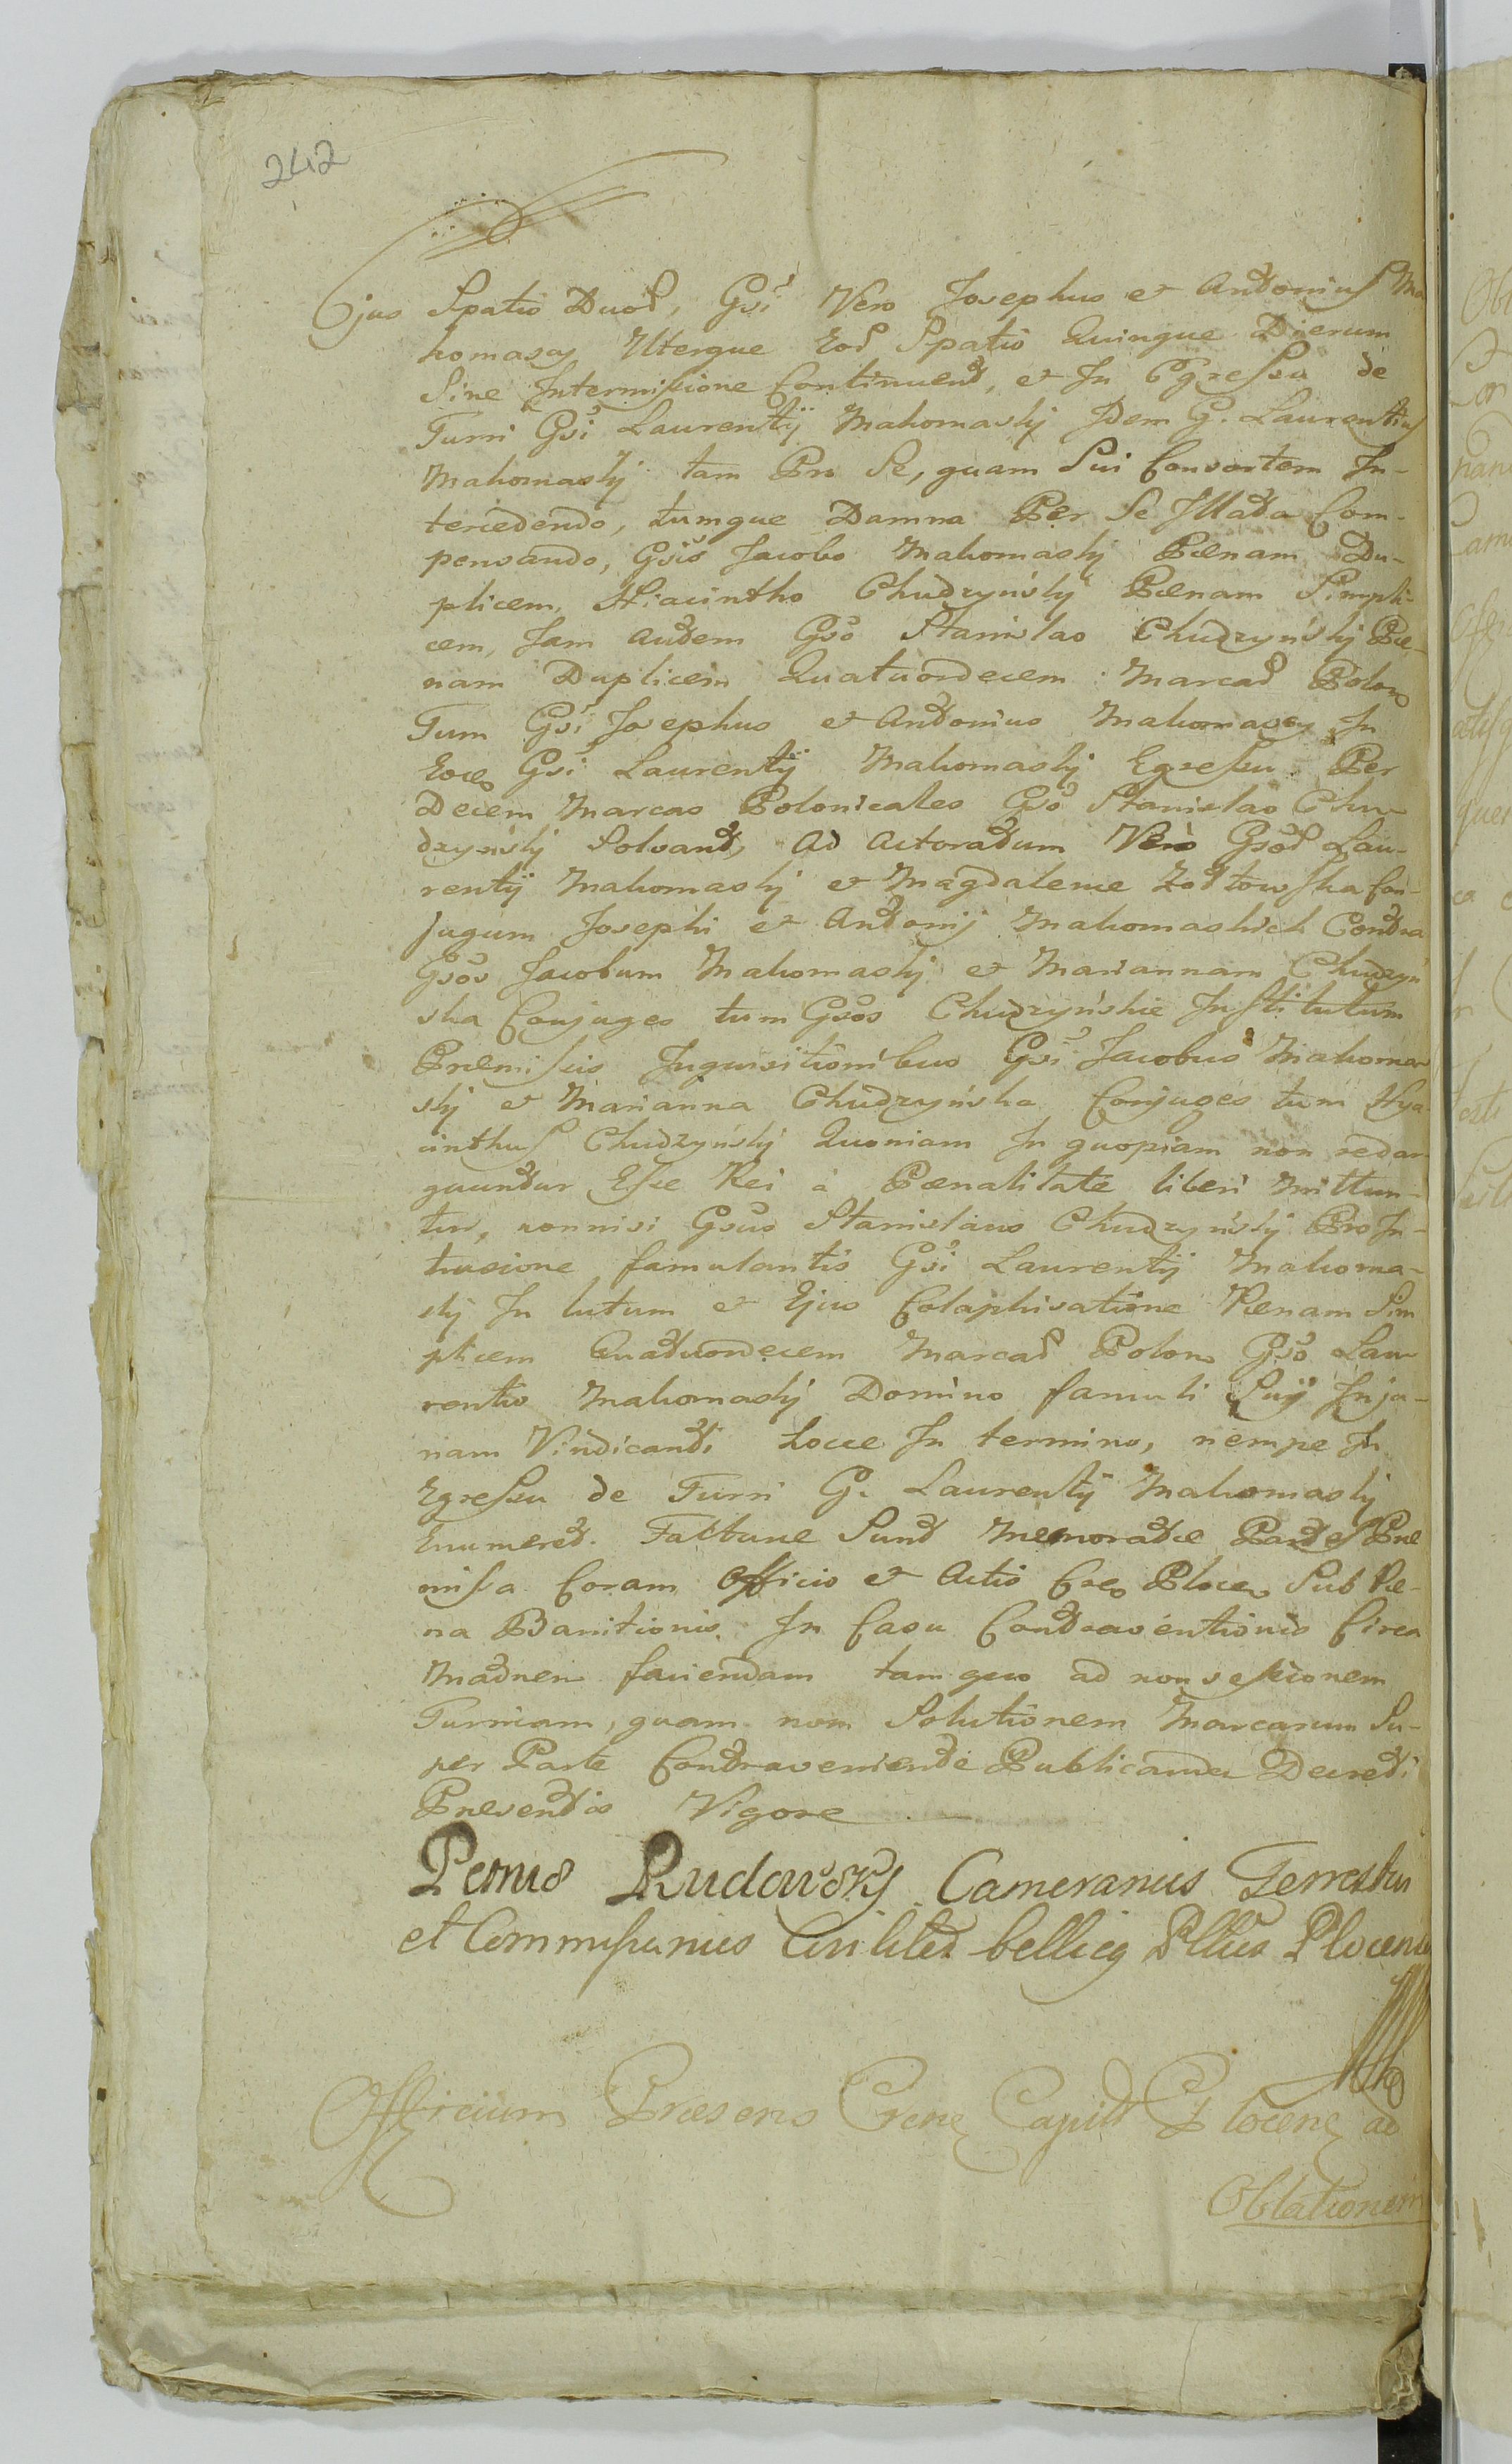 242
Ejus Spatio Duod, Gsi Vero Josephus et Antonius Ma
komascy Uterque Eod Spatio Quinque Dierum
Sine Intermissione Continuend, et In Egressu de
Turri Gsi Laurentij Makomaskj Idem G. Laurentius
Makomaskj tam Pro Se, quam Sui Consortem In-
tercedendo, tumque Damna Per Se Illata Com-
pensando, Gsis Jacobo Makomaskj Pænam Du-
plicem, Hiacintho Chudzyńskj Pænam Simpli-
cem, Jam Autem Gso Stanislao Chudzyńskj Pæ-
nam Duplicem Quatuordecem Marcad Polon
Tum Gsi Josephus et Antonius Makomascy In
Eoce Gsi Laurentij Makomaskj Egressu Per
Decem Marcas Polonicales Gso Stanislao Chu-
dzyńskj Solvand, Ad Actoratum Vero Gsod Lau-
rentij Makomaskj et Magdalenæ Zołtowska Con-
jugum Josephi et Antonij Makomaskich Contra
Gsos Jacobum Makomaskj et Mariannam Chudzyń
ska Conjuges tum Gsos Chudzyńskie Institutum
Præmissis Inquisitionibus Gsi Jacobus Makoma
skj et Marianna Chudzyńska Conjuges tum Hya
cinthus Chudzyńskj Quoniam In quopiam non redar
guuntur Esse Rei a Pænalitate liberi mittun-
tur, nonnisi Gsus Stanislaus Chudzyńskj Pro In-
trusione famulantis Gsi Laurentij Makoma-
skj In lutum et Ejus Colaphisatione Pænam Sim
plicem Quatuordecem Marcad Polon Gso Lau
rentio Makomaskj Domino famuli Suij Inju-
riam Vindicanti Locce In termino, nempe In
Egressu de Turri G. Laurentij Makomaskj
Enumeret. Facturæ Sunt Memoratæ Partes Præ
missa Coram Officio et Actis Cre Plocen Sub Pæ-
na Banitionis In Casu Contraventionis Circa
Matnen faciendam tam quo ad non sessionem
Turrium, quam non Solutionem Marcarum Su-
per Parte Contraveniente Publicanda Decreti
Præsentis Vigore
Petrus Rudowskj Camerarius Terrestris
et Commissarius Civilité bellicg Pllus Plocens
Officium Præsens Crene Capit Plocene ad
Oblationem